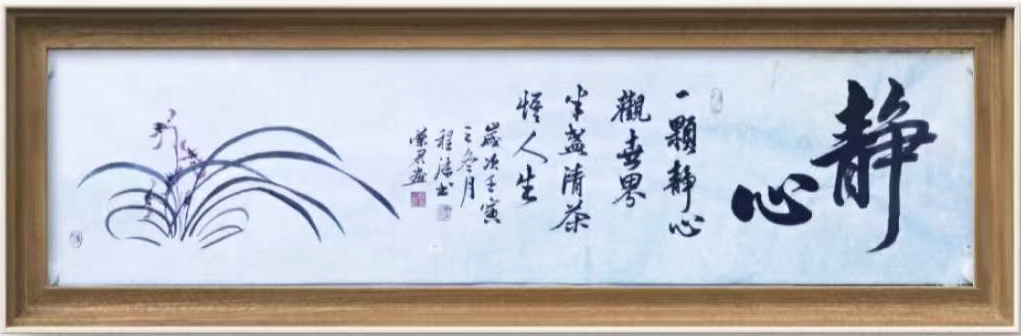 静心
一顆静心
觀世界
半盏清茶
悟人生
歲次壬寅
之冬月
程涛书
荣君画